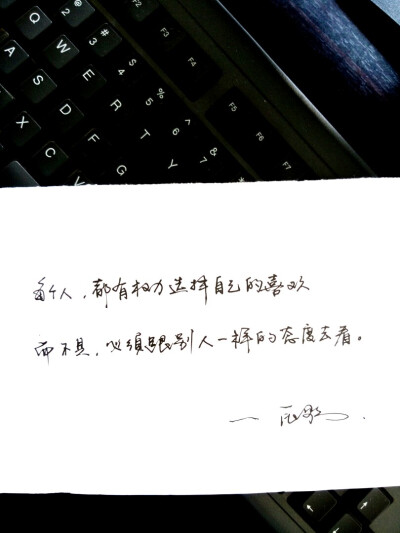 Q W E R T Y
A S D F G
Z X
2 @
3 #
4 $
5 %
6 ^
7 &
F2
F3
F4
F5
F6
F7
每个人，都有权力选择自己的喜欢
而不是，必须跟别人一样的态度去看。